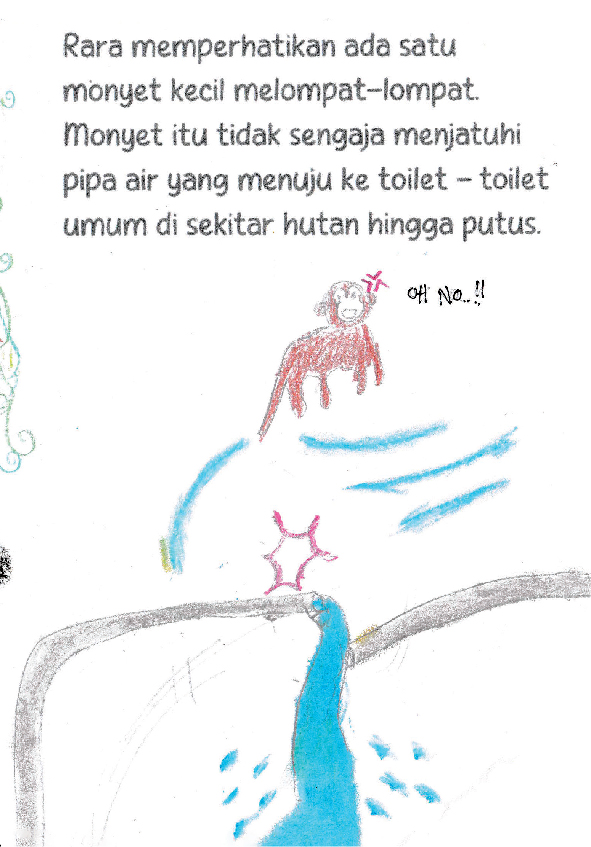 Rara memperhatikan ada satu
monyet kecil melompat-lompat.
Monyet itu tidak sengaja menjatuhi
pipa air yang menuju ke toilet - toilet
umum di sekitar hutan hingga putus.
OH NO..!!